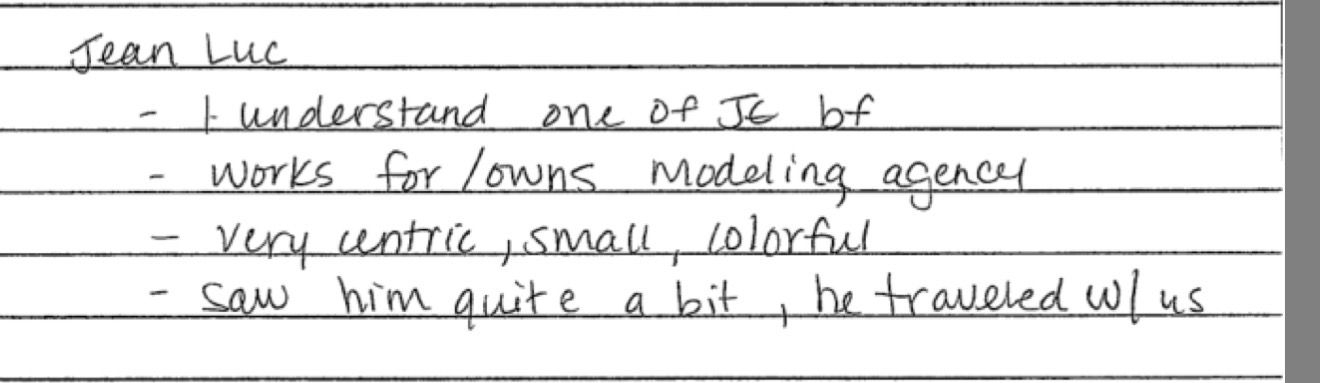 Jean Luc
- I understand one of JE bf
- works for/owns modeling agency
- very centric, small, colorful
- saw him quite a bit, he traveled w/ us